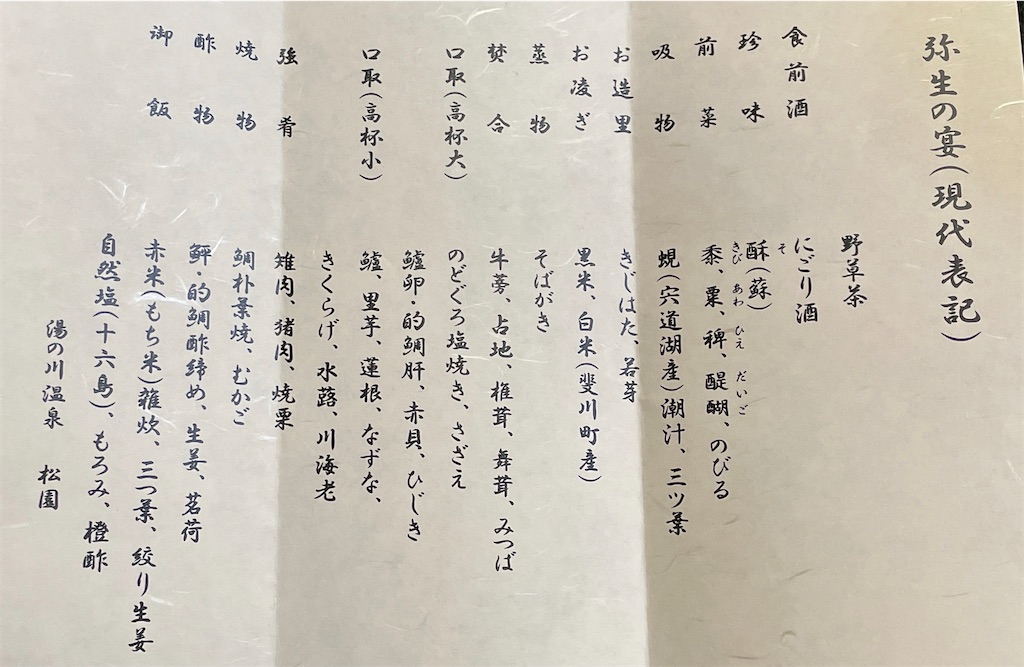 弥生の宴(現代表記)
野草茶
食前酒 にごり酒
珍味 酥(蘇)
そ
前菜 黍、粟、稗、醍醐、のびる
きび あわ ひえ だいご
吸物 蜆(宍道湖産)潮汁、三ツ葉
お造里 きじはた、若芽
お凌ぎ 黒米、白米(斐川町産)
蒸物 そばがき
焚合 牛蒡、占地、椎茸、舞茸、みつば
口取(高杯大) のどぐろ塩焼き、さざえ
鱸卵・的鯛肝、赤貝、ひじき
口取(高杯小) 鱸、里芋、蓮根、なずな、
きくらげ、水蕗、川海老
強肴 雉肉、猪肉、焼栗
焼物 鯛朴葉焼、むかご
酢物 鮃・的鯛酢締め、生姜、茗荷
御飯 赤米(もち米)雑炊、三つ葉、絞り生姜
自然塩(十六島)、もろみ、橙酢
湯の川温泉 松園